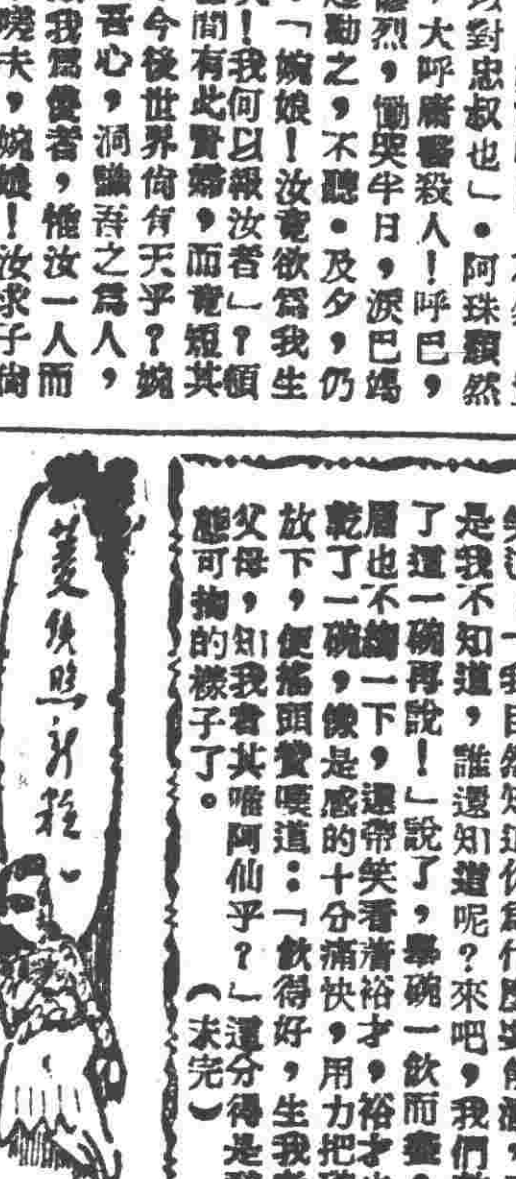 對忠叔也」。阿珠然
，大呼庸醫殺人！呼巴，
烈，慟哭半日，淚巴竭
勸之，不聽。及夕，仍
「婉娘！汝竟欲爲我生
！我何以報汝者」？頓
間有此賢婦，而竟短其
今後世界尙有天乎？婉
吾心，洞識吾之爲人，
我爲儍者，惟汝一人而
嗟夫，婉娘！汝求子尙
是我不知道，誰還知道呢？來吧，我們
了這一碗再說！」說了，舉碗一飲而盡，
眉也不縐一下，還帶笑看着裕才，裕才
乾了一碗，像是感的十分痛快，用力把
放下，便搖頭贊嘆道：「飲得好，生我
父母，知我者其唯阿仙乎？」這分得是
態可掬的樣子了。（未完）
菱照新粧